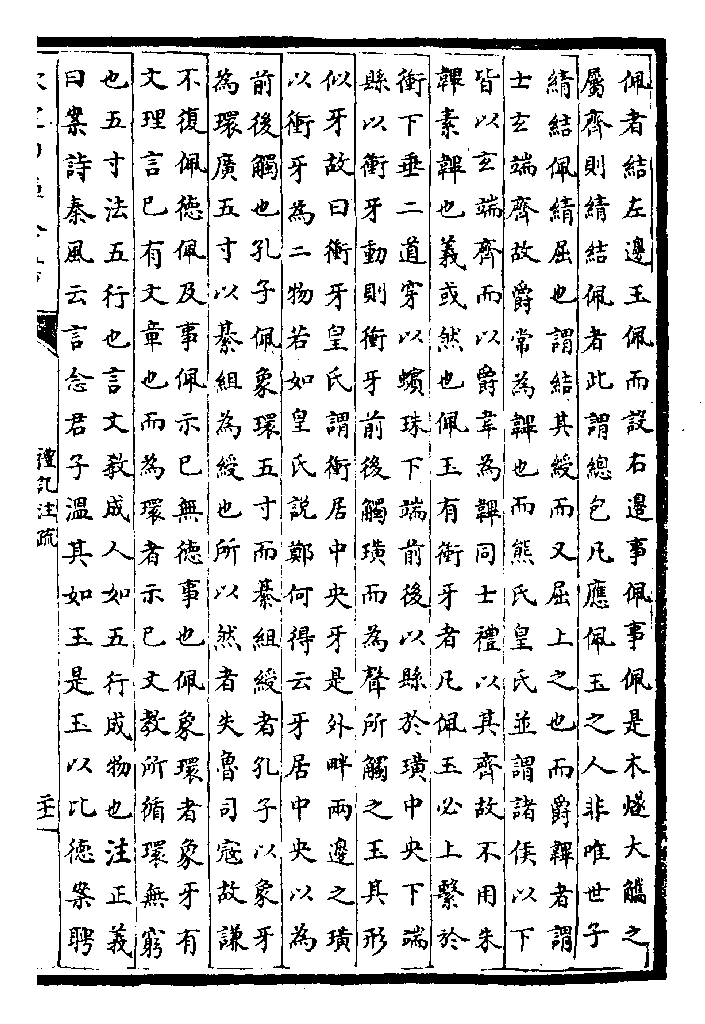 佩者結左邊玉佩而設右邊事佩事佩是木燧大觿之
屬齊則綪結佩者此謂總包凡應佩玉之人非唯世子
綪結佩綪屈也謂結其綬而又屈上之也而爵韠者謂
士玄端齊故爵常為韠也而熊氏皇氏並謂諸侯以下
皆以玄端齊而以爵韋為韠同士禮以其齊故不用朱
韠素韠也義或然也佩玉有衝牙者凡佩玉必上繫於
衝下垂二道穿以蠙珠下端前後以縣於璜中央下端
縣以衝牙動則衝牙前後觸璜而為聲所觸之玉其形
似牙故曰衝牙皇氏謂衝居中央牙是外畔兩邊之璜
以衝牙為二物若如皇氏說鄭何得云牙居中央以為
前後觸也孔子佩象環五寸而綦組綬者孔子以象牙
為環廣五寸以綦組為綬也所以然者失魯司寇故謙
不復佩德佩及事佩示已無德事也佩象環者象牙有
文理言已有文章也而為環者示已文教所循環無窮
也五寸法五行也言文教成人如五行成物也注正義
曰案詩秦風云言念君子溫其如玉是玉以比德案聘
禮記注疏